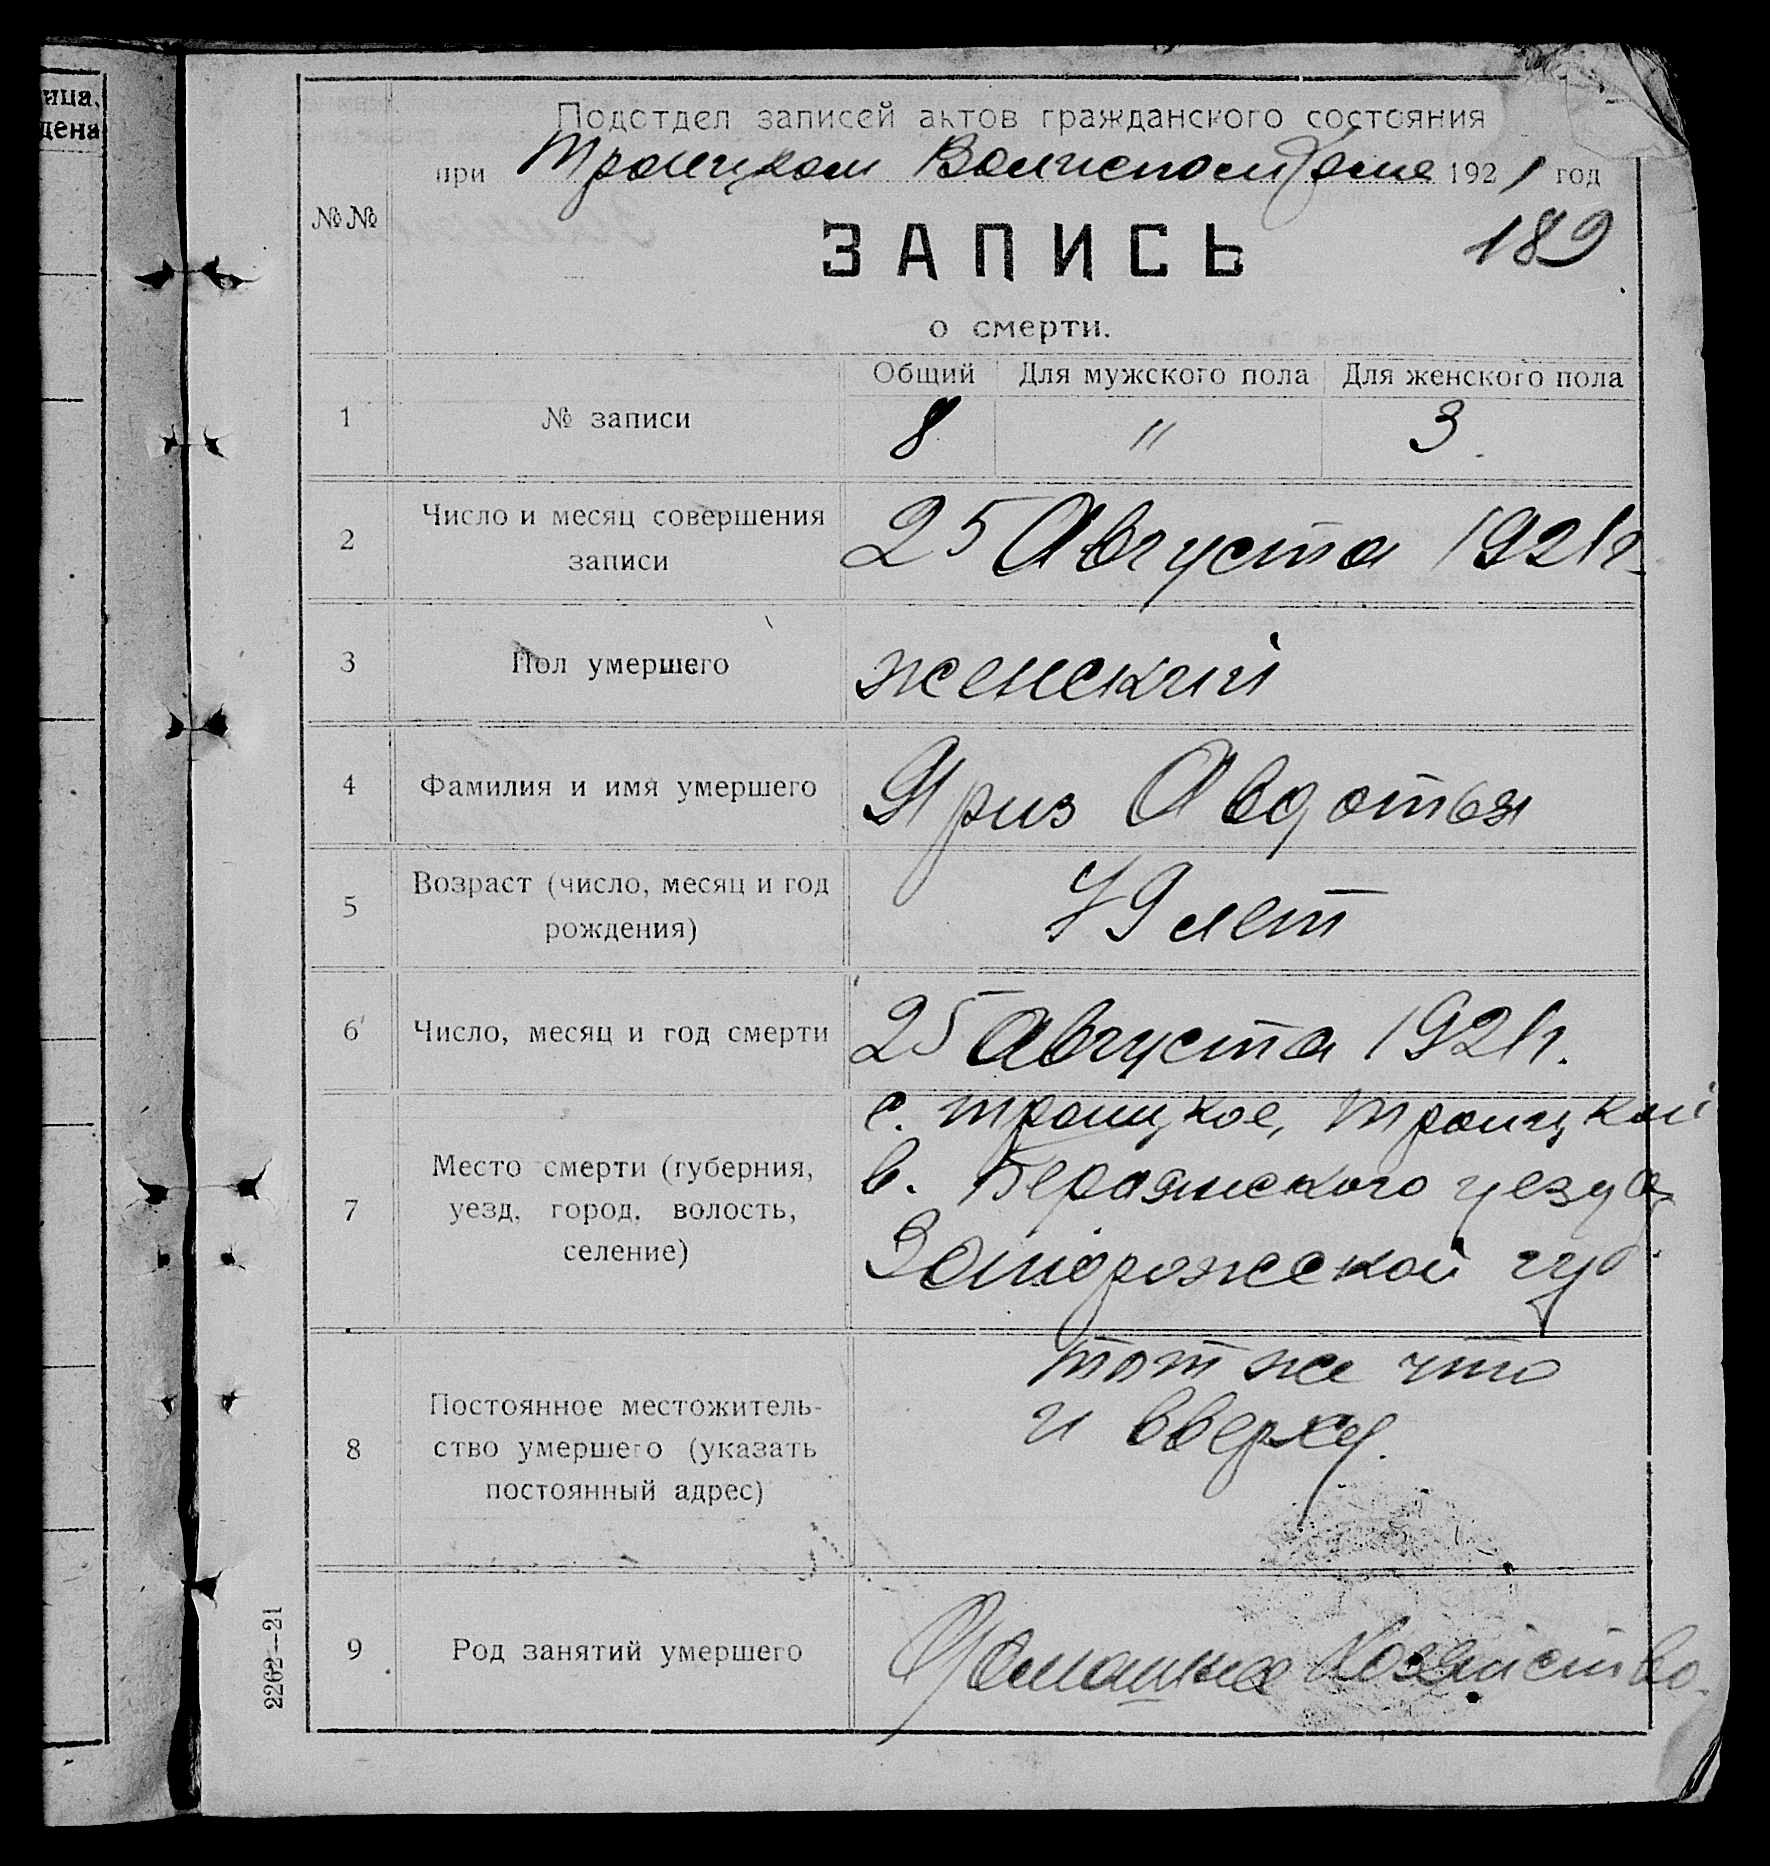 ица,
дена
Подотдел записей актов гражданского состояния
при Троицком Волисполкоме 1921 год
№№
189
ЗАПИСЬ
о смерти.
Общий Для мужского пола Для женского пола
1 № записи 8 " 3
2 Число и месяц совершения
записи
25 Августа 1921 г.
3 Пол умершего женский
4 Фамилия и имя умершего Яриз Авдотья
5 Возраст (число, месяц и год
рождения)
79 лет
6 Число, месяц и год смерти 25 Августа 1921 г.
7 Место смерти (губерния,
уезд, город, волость,
селение)
с. Троицкое, Троицкой
в. Бердянского уезда
Запорожской губ.
8 Постоянное местожитель-
ство умершего (указать
постоянный адрес)
тот же что
и вверху.
9 Род занятий умершего Домашнее хозяйство.
2262—21